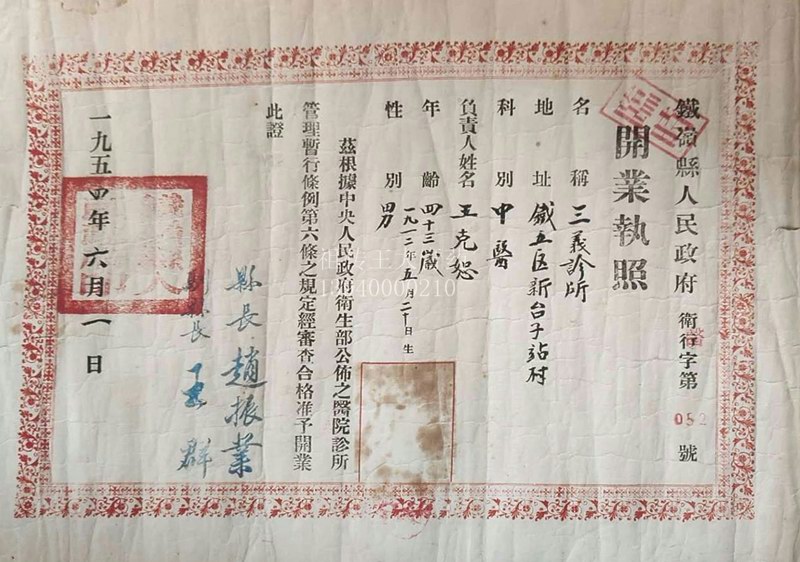 鐵嶺縣人民政府 衛行字第052號
臨時
開業執照
名稱 三義診所
地址 鐵五區新台子站村
科別 中醫
負責人姓名 王克恕
年齡 四十三歲
一九一二年五月二十日生
性別 男
茲根據中央人民政府衛生部公佈之醫院診所
管理暫行條例第六條之規定經審查合格准予開業
此證
縣長 趙振業
副縣長 王群
一九五四年六月二日